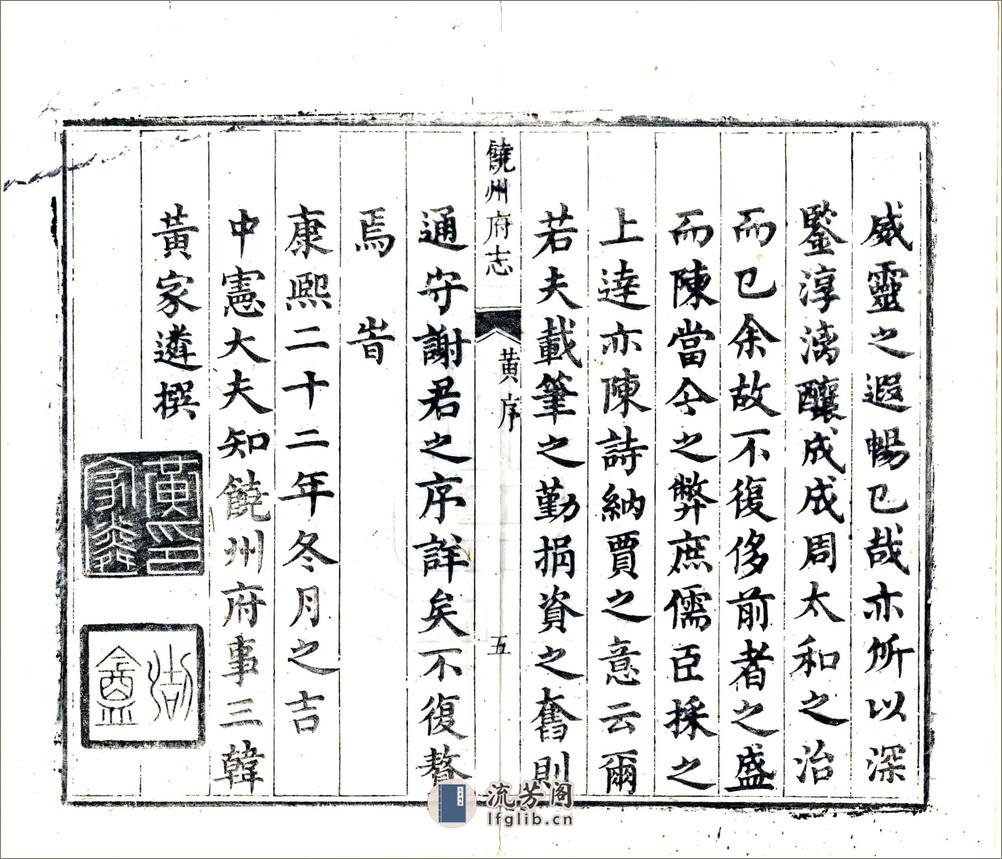 威靈之遐暢已哉亦所以深
鑒淳漓釀成成周太和之治
而已余故不復侈前者之盛
而陳當今之弊庶儒臣採之
上達亦陳詩納賈之意云爾
若夫載筆之勤捐資之奮則
饒州府志
黄序
五
通守謝君之序詳矣不復贅
焉 旹
康熙二十二年冬月之吉
中憲大夫知饒州府事三韓
黃家遴撰
黃印
家遴
流芳阁
lfglib.cn